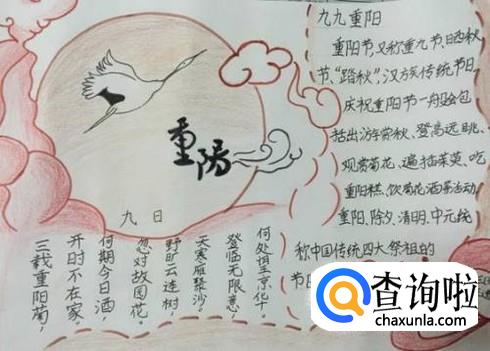 重陽
九日
三载重阳菊，
开时不在家。
何期今日酒，
忽对故园花。
野旷云连树，
天寒雁聚沙。
登临无限意，
何处望京华。
九九重阳
重阳节，又称重九节、晒秋
节、“踏秋”，汉族传统节日。
庆祝重阳节一般会包
括出游赏秋、登高远眺、
观赏菊花、遍插茱萸、吃
重阳糕、饮菊花酒等活动。
重阳、除夕、清明、中元统
称中国传统四大祭祖的
节日
查询啦
chaxunla.com